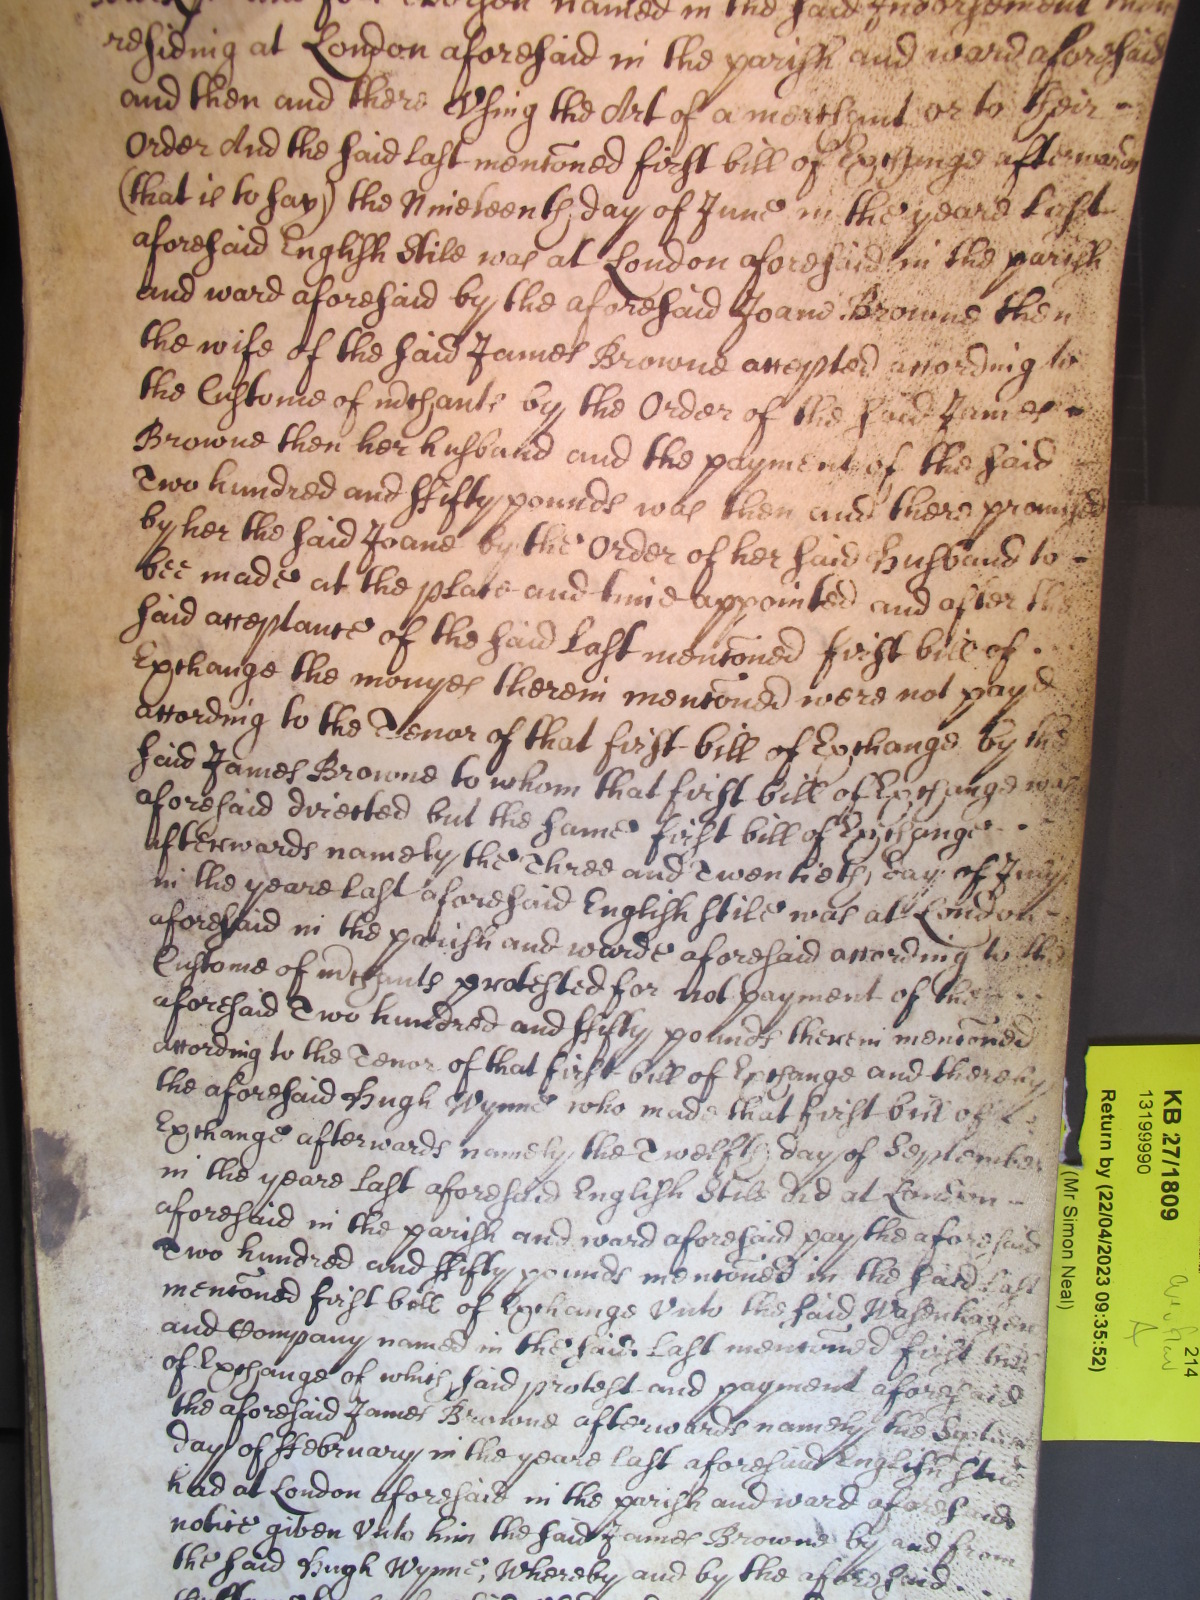 named in the said Indorsement then
residing at London aforesaid in the parish and ward aforesaid
and then and there Vsing the Art of a merchant or to their
Order And the said last mentoned first bill of Exchange afterwards
(that is to say) the Nineteenth day of June in the yeare last
aforesaid English Stile was at London aforesaid in the parish
and ward aforesaid by the aforesaid Joane Browne then
the wife of the said James Browne accepted according to
the Custome of mchants by the Order of the said James
Browne then her husband and the payment of the said
Two hundred and ffifty pounds was then and there promised
by her the said Joane by the Order of her said Husband to
bee made at the place and time appointed and after the
said acceptance of the said Last mentoned first bill of
Exchange the monyes therein mentoned were not payd
according to the Tenor of that first bill of Exchange by the
said James Browne to whom that first bill of Exchange was
aforesaid directed but the same first bill of Exchange
afterwards namely the Three and Twentieth day of July
in the yeare last aforesaid English stile was at London
aforesaid in the parish and warde aforesaid according to the
Custome of mchants protested for not payment of the
aforesaid Two hundred and ffifty pounds therein mentoned
according to the Tenor of that first bill of Exchange and thereby
the aforesaid Hugh Wynne who made that first bill of
Exchange afterwards namely the Twelfth day of September
in the yeare last aforesaid English Stile did at London
aforesaid in the parish and ward aforesaid pay the aforesaid
Two hundred and ffifty pounds mentoned in the said last
mentoned first bill of Exchange Vnto the said Wasenhagen
and Company named in the said Last mentoned first bill
of Exchange of which said protest and payment aforesaid
the aforesaid James Browne afterwards namely the
day of ffebruary in the yeare last aforesaid English stile
had at London aforesaid in the parish and ward aforesaid
notice given Vnto him the said James Browne by and from
the said Hugh Wynne, Whereby and by the aforesaid
KB 27/1809
13199990
Return by (22/04/2023 09:35:52)
(Mr Simon Neal)
214
A